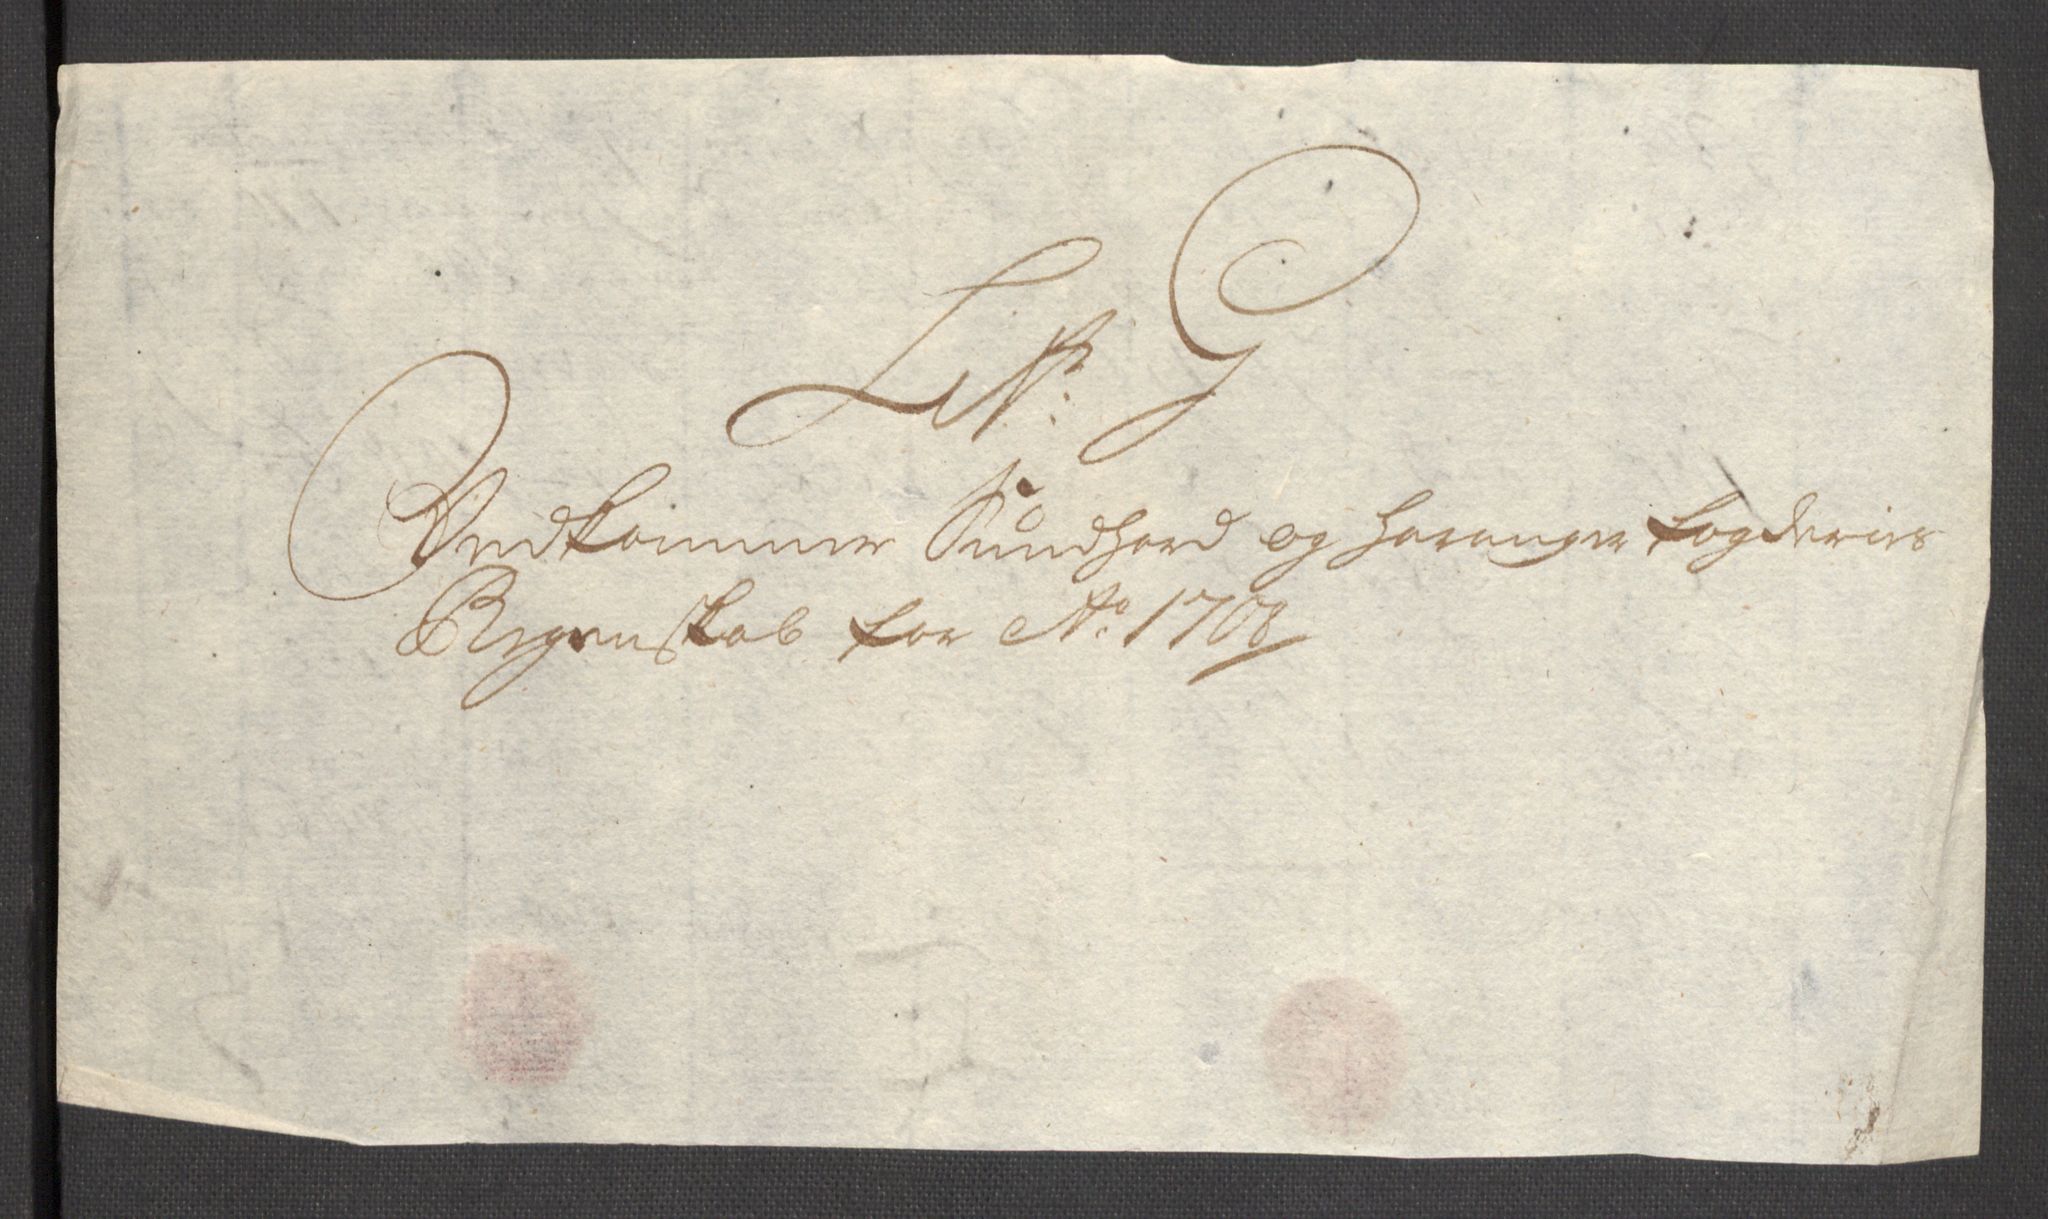 Litr: G
Vedkommer Sundhord og Haranger fogderies
Regenskab for Ao: 1708